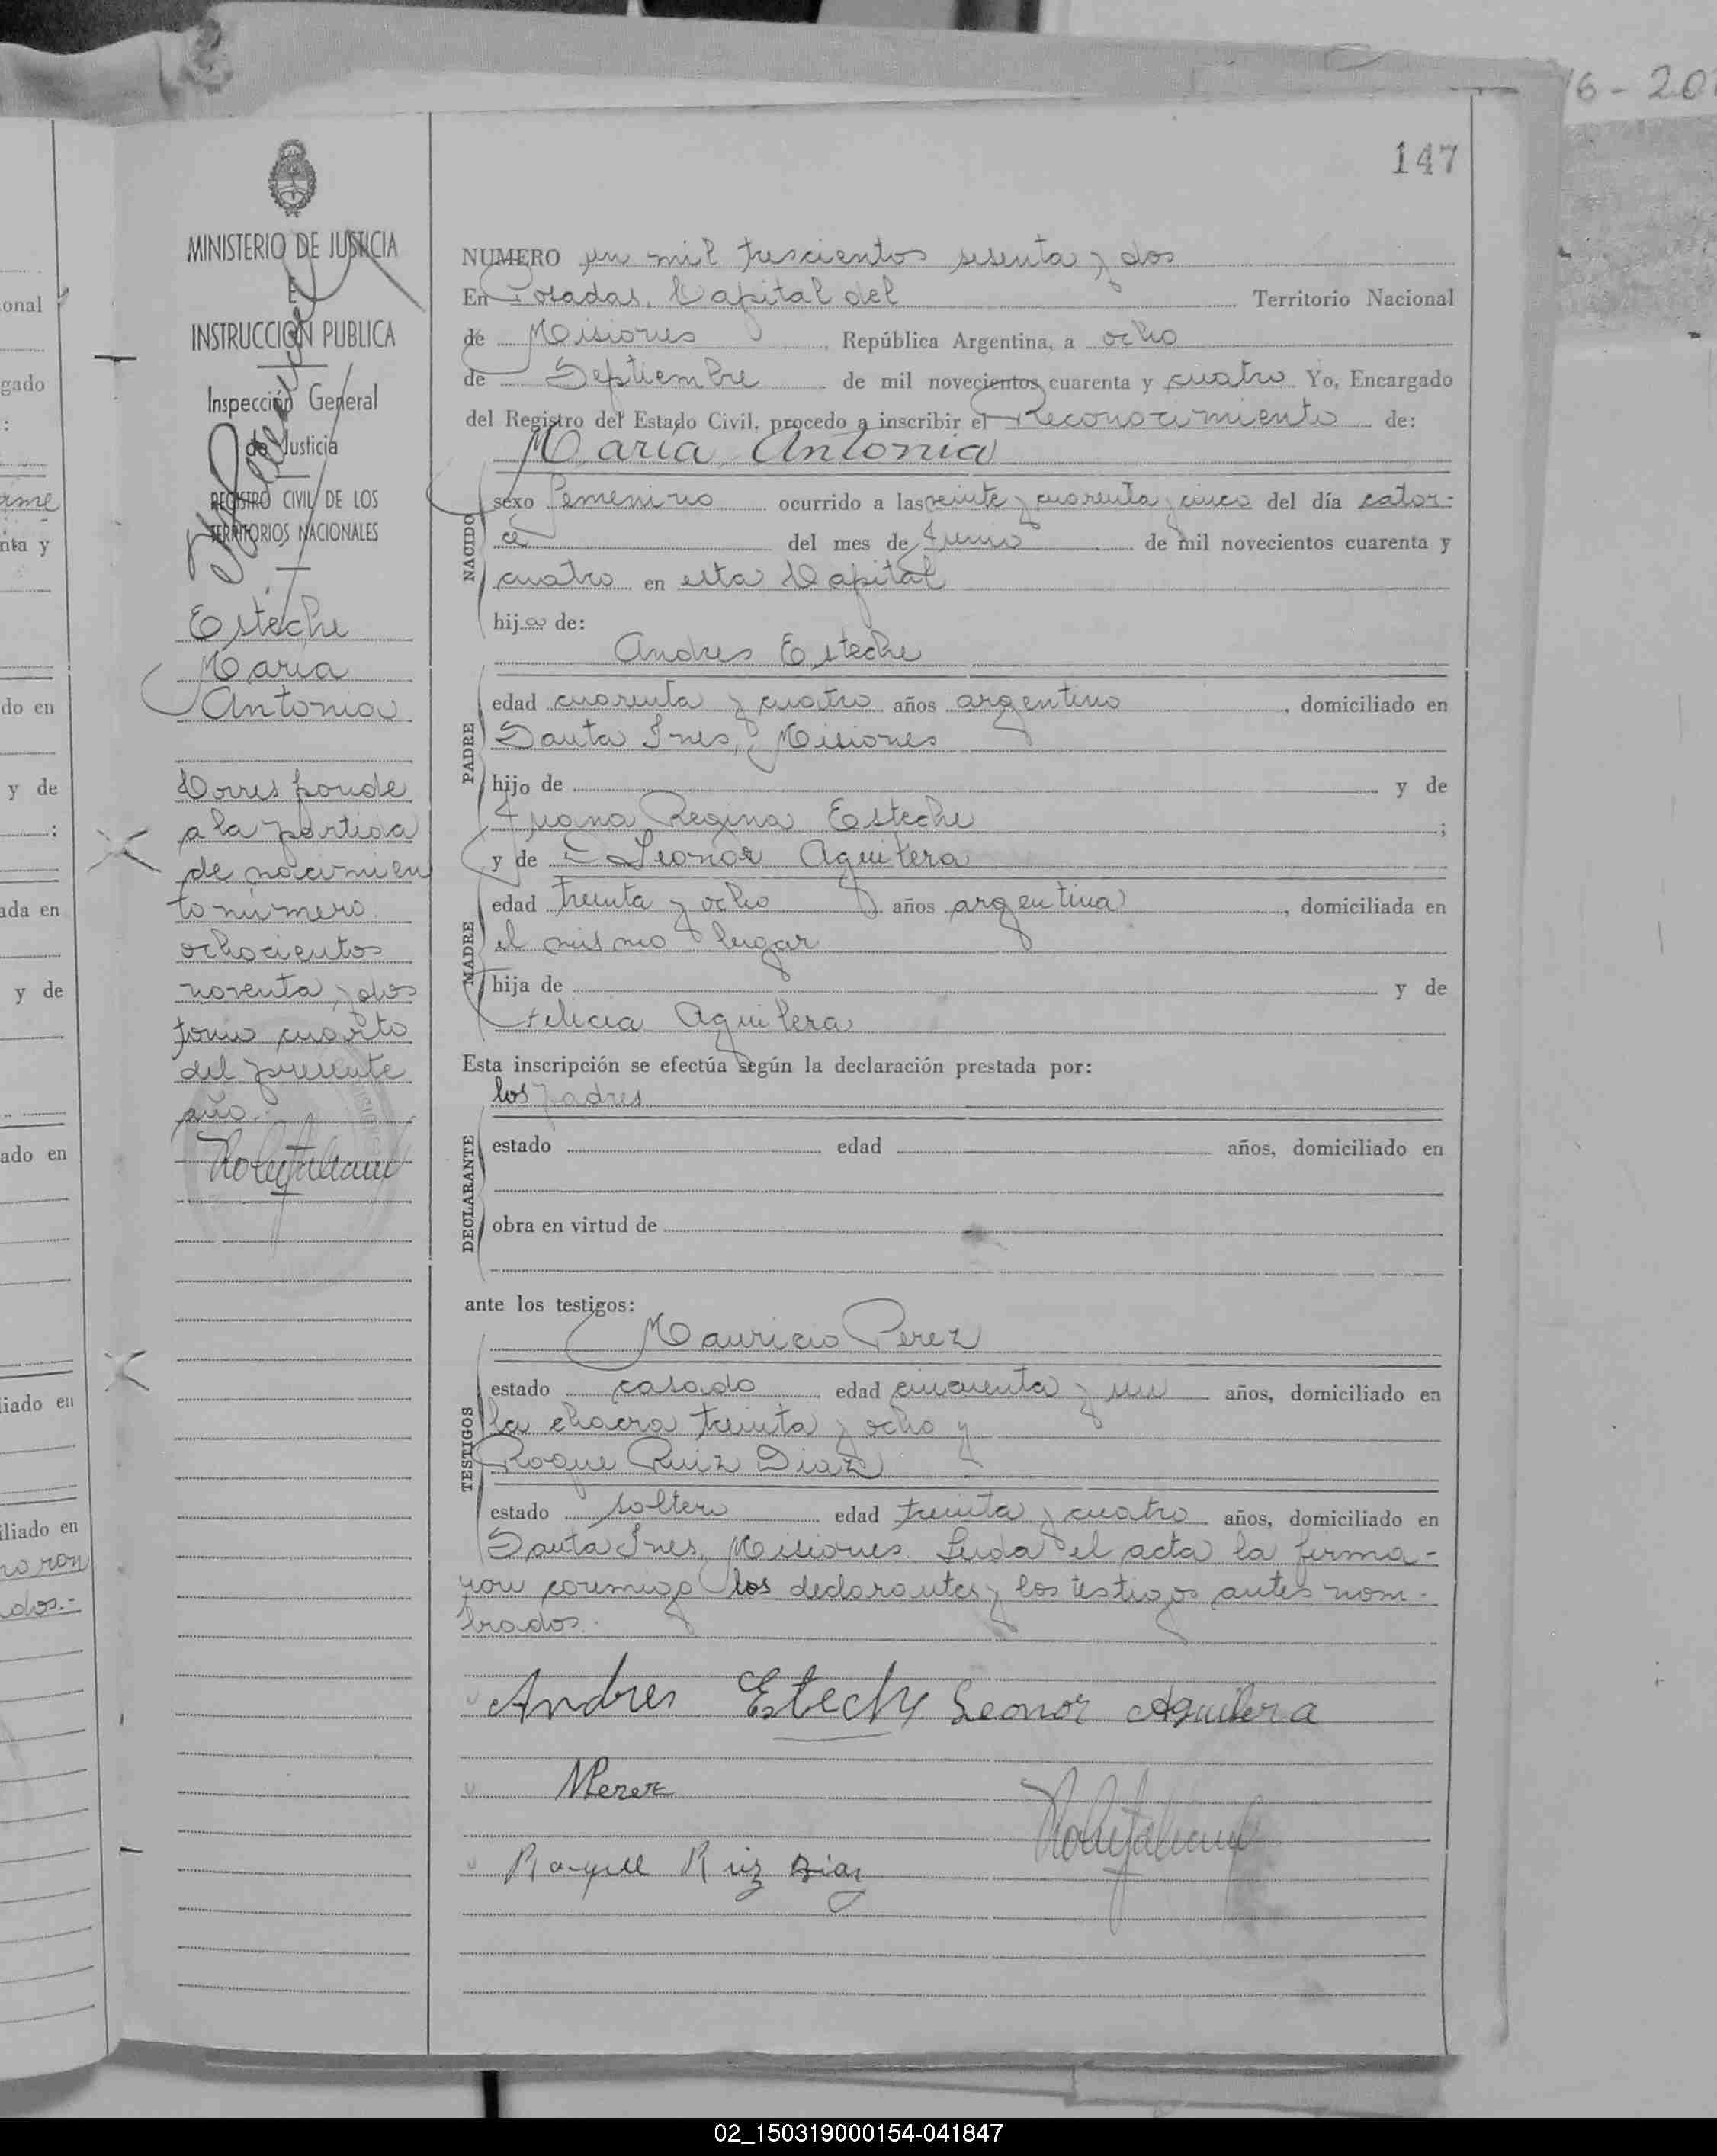 16-20
147
MINISTERIO DE JUSTICIA
E
INSTRUCCION PUBLICA
Inspección General
de Justicia
REGISTRO CIVIL DE LOS
TERRITORIOS NACIONALES
Esteche
Maria
Antonia
Corresponde
a la partida
de nacimien
to número
ochocientos
noventa y dos
tomo cuarto
del presente
año.
NUMERO un mil trescientos sesenta y dos
En Posadas, Capital del Territorio Nacional
de Misiones, República Argentina, a ocho
de Septiembre de mil novecientos cuarenta y cuatro Yo, Encargado
del Registro del Estado Civil, procedo a inscribir el Reconocimiento de:
Maria Antonia
NACIDO
sexo femenino ocurrido a las veinte y cuarenta y cinco del día cator-
ce del mes de Junio de mil novecientos cuarenta y
cuatro en esta Capital
hija de:
Andres Esteche
PADRE
edad cuarenta y cuatro años argentino, domiciliado en
Santa Ines, Misiones
hijo de y de
Juana Regina Esteche ;
y de Leonor Aguilera
MADRE
edad treinta y ocho años argentina, domiciliada en
el mismo lugar
hija de y de
Felicia Aguilera
Esta inscripción se efectúa según la declaración prestada por:
los padres
DECLARANTE
estado edad años, domiciliado en
obra en virtud de
ante los testigos:
Mauricio Perez
TESTIGOS
estado casado edad cincuenta y un años, domiciliado en
la chacra treinta y ocho y
Roque Ruiz Diaz
estado soltero edad treinta y cuatro años, domiciliado en
Santa Ines, Misiones. Leida el acta la firma-
ron conmigo los declarantes y los testigos antes nom-
brados.
Andres Esteche Leonor Aguilera
MPerez
Roque Ruiz Diaz
onal
gado
:
nta y
do en
y de
:
ada en
y de
ado en
liado en
iliado en
dos.-
02_150319000154-041847